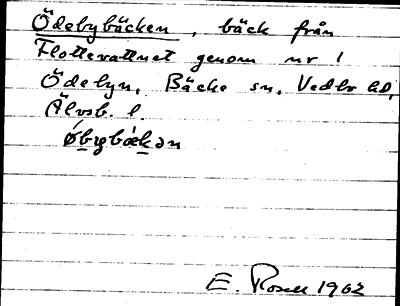 Ödebybäcken, bäck från
Flottevattnet genom nr 1
Ödebyn, Bäcke sn, Vedbo hd,
Älvsb. l.
øbybäkən
E. Rosell 1962